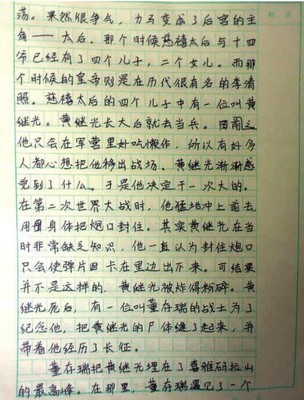 荡。果然很争气，力五变成了后宫的主
角——太后。那个时候慈禧太后与十四
爷已经有了四个儿子，二个女儿。而那
个时候的皇帝则是在历代很有名的李清
照。慈禧太后的四个儿子中有一位叫黄
继光。黄继光长大后就去当兵。因
他只会在军营里好吃懒作，所以有好多
人都心想把他移出战场。黄继光渐渐感
觉到了什么。于是他决定干一次大的。
在第二次世界大战时，他猛地冲上前去，
用身体把炮口封住。其实黄继光在当
时非常缺乏知识，他一直认为封住炮口
只会使弹片因卡在里边出不来。可结果
并不是这样的，黄继光被炸得粉碎。黄
继光死后，有一位叫董存瑞的战士为了
纪念他，把黄继光的尸体缝了起来，并
带着他经历了长征。
董存瑞把黄继光埋在了喜雅码拉山
的最高峰。在那里，董存瑞遇见了一个